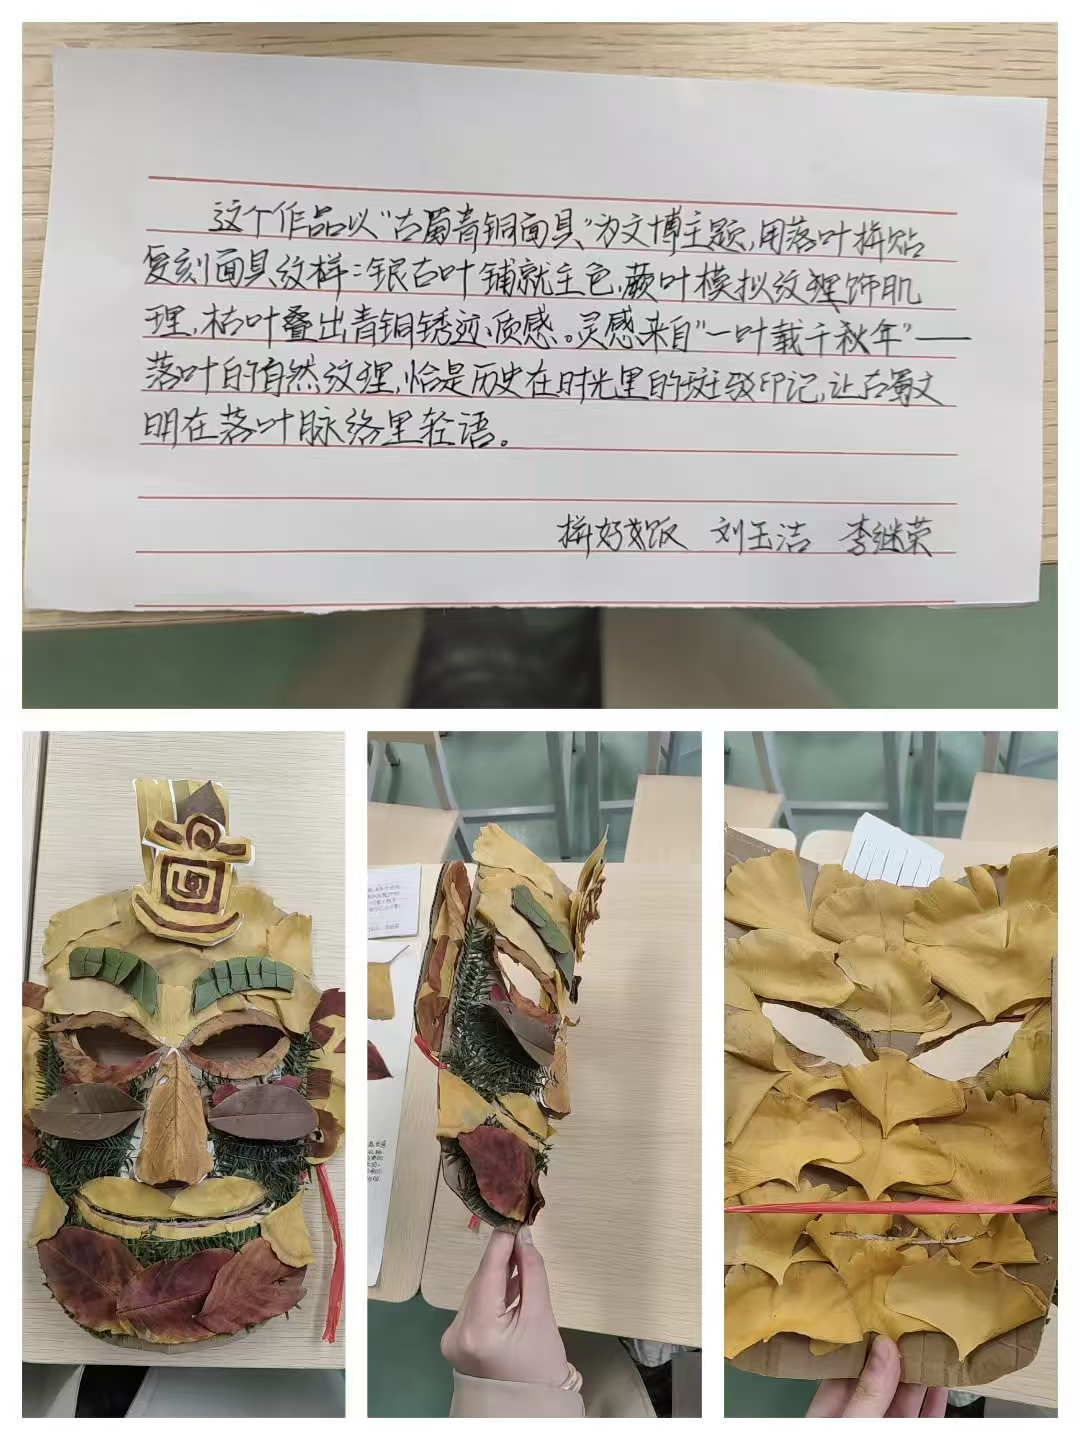 这个作品以“古蜀青铜面具”为文博主题,用落叶拼贴
复刻面具纹样:银杏叶铺就主色,蕨叶模拟纹理饰肌
理,枯叶叠出青铜锈迹质感。灵感来自“一叶载千秋年”——
落叶的自然纹理,恰是历史在时光里的斑驳印记,让古蜀文
明在落叶脉络里轻语。
拼好饭 刘玉洁 李继荣